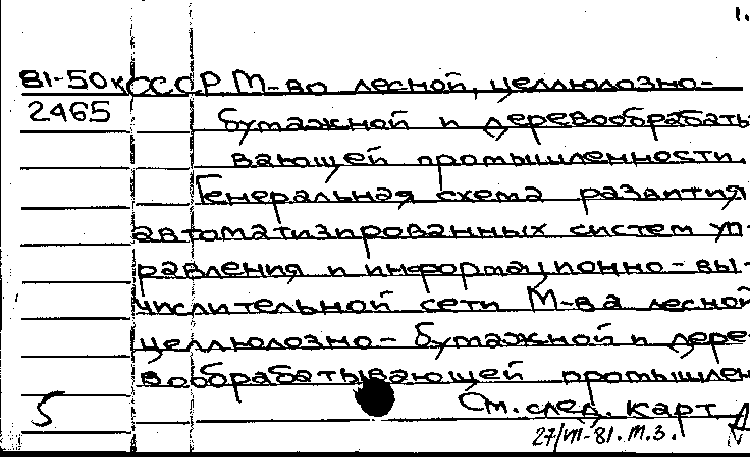 1.
81-50к СССР. М-во лесной, целлюлозно-
2465 бумажной и деревообрабаты-
вающей промышленности.
Генеральная схема развития
автоматизированных систем уп-
равления и информационно-вы-
числительной сети М-ва лесной
целлюлозно-бумажной и дере-
вообрабатывающей промышлен
5 См. след. карт
27/VII-81. т.з.